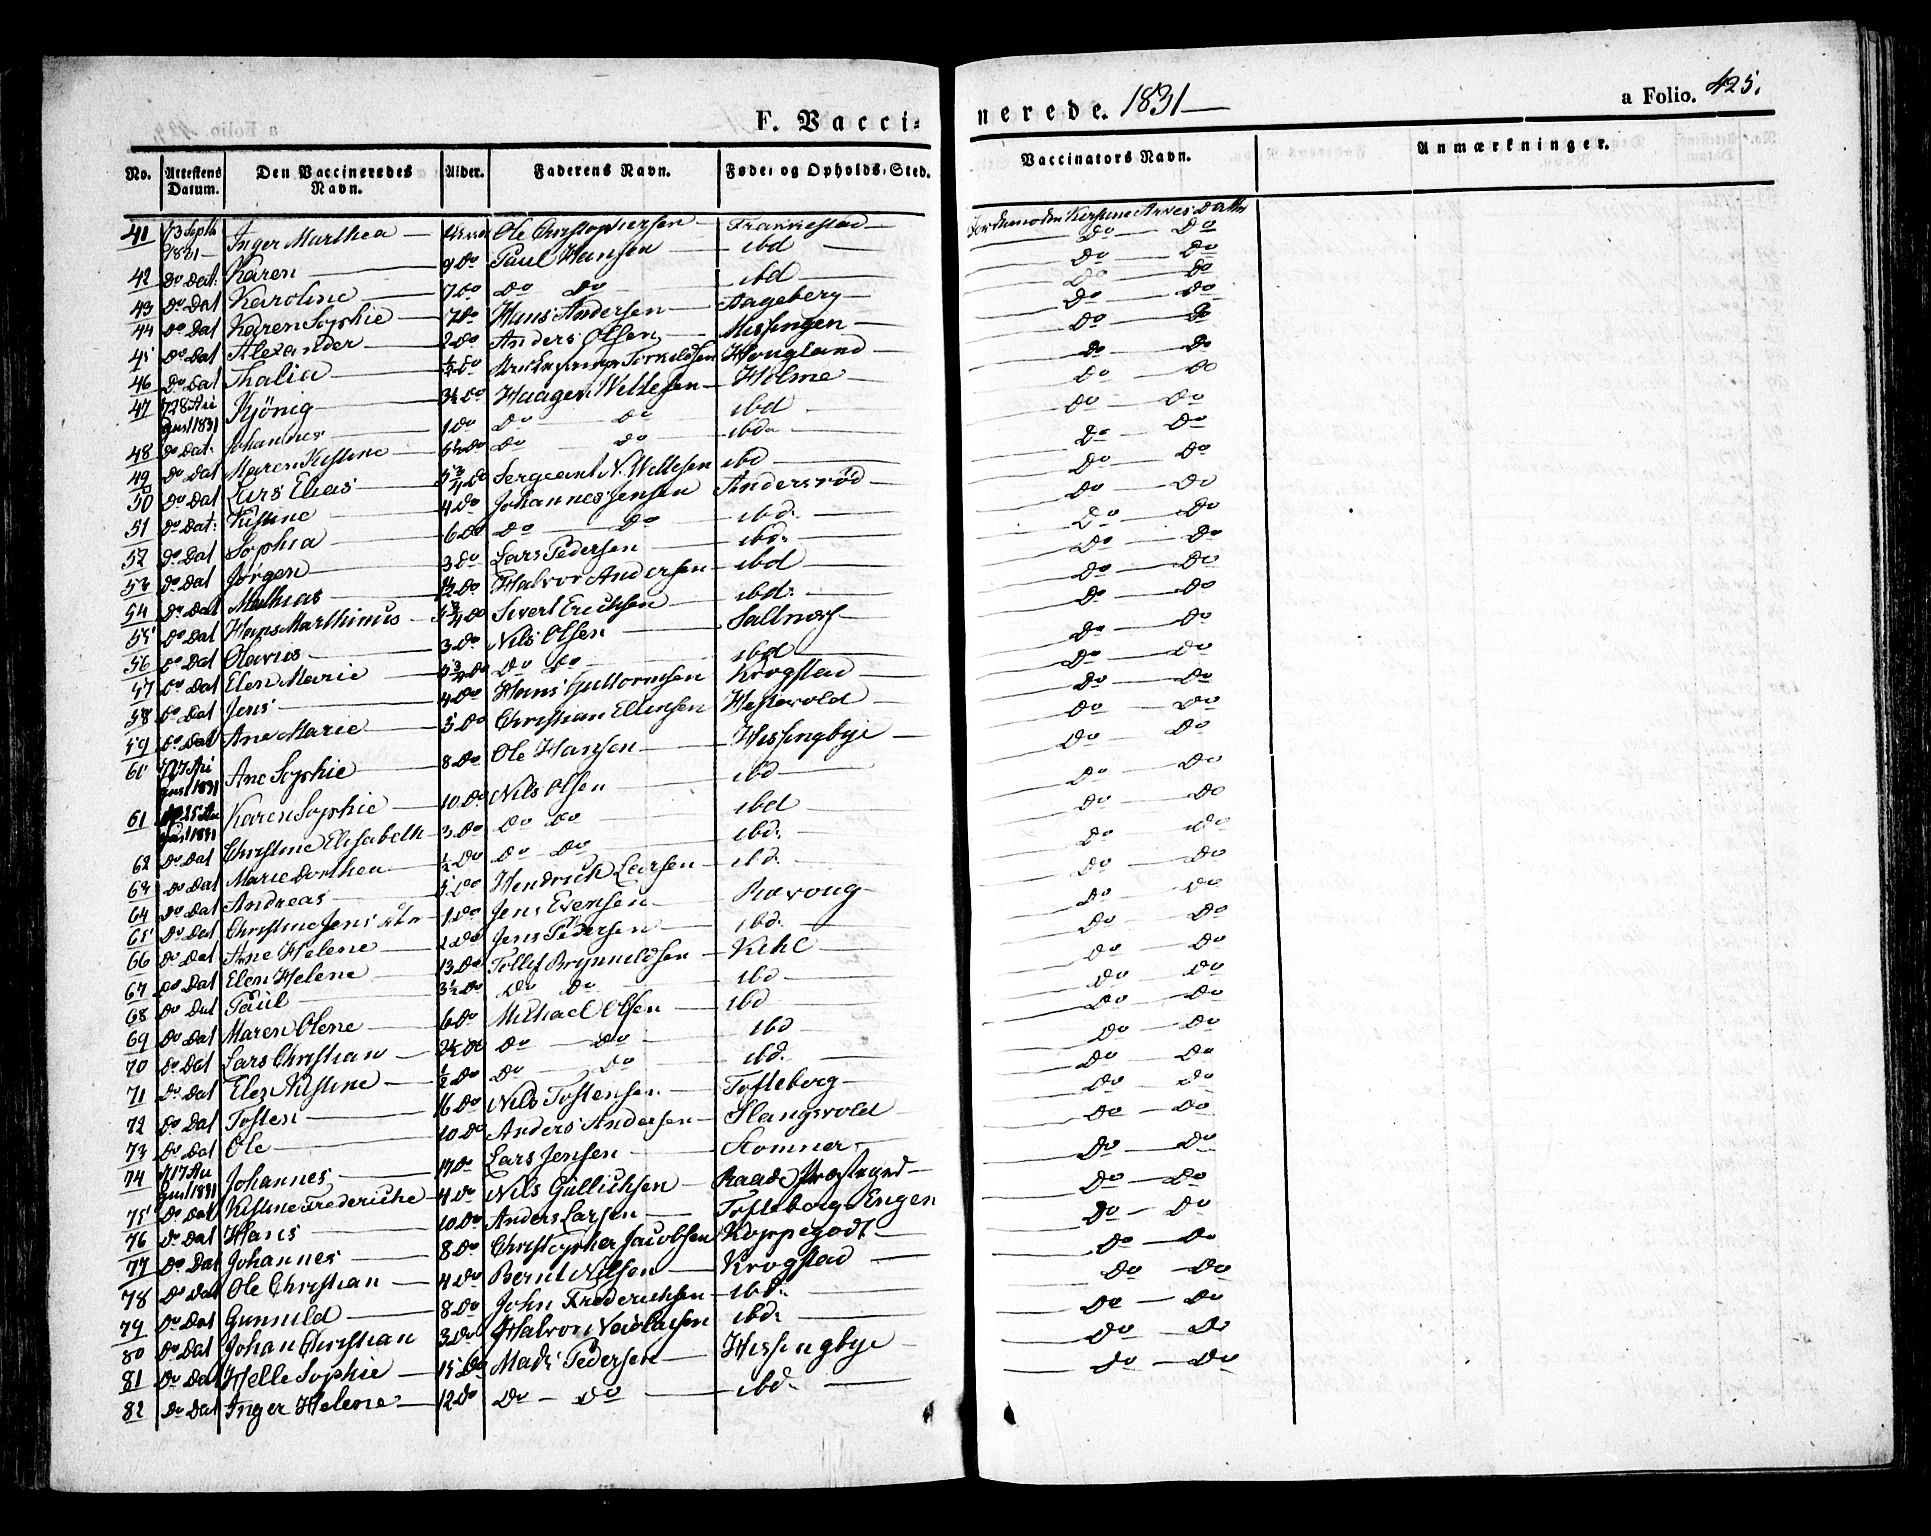 F. Vacci-nerede. 1831 a Folio. 425.
No. Attestens Datum. Den Vaccineredes Navn. Alder. Faderens Navn. Føde- og Opholds-Sted. Vaccinators Navn. Anmærkninger.
41 Septb 1831 Inger Marthea Ole Christophersen Jordemoder Kirstine Arnes Datter
42 Do Dat: Karen 9 Do Paul Hansen ibd Do Do
43 Do Dat Karoline 7 Do Do Do ibd Do Do
44 Do Dat Karen Sophie 7 Do Hans Andersen Dageberg Do Do
45 Do Dat Alexander 2 Do Anders Olsen Missingen Do Do
46 Do Dat Thalia Do Hougland Do Do
47 28 August 1831 Kjönig 3½ Do Haagen Willesen Holme Do Do
48 Do Dat: Johannes 1 Do Do Do ibd Do Do
49 Do Dat Maren Kistine Do Do Do ibd Do Do
50 Do Dat Lars Elias Do Sergeant N. Willesen ibd Do Do
51 Do Dat: Kistine 4 Do Johannes Jensen Andersröd Do Do
52 Do Dat Sophia 6 Do Do Do ibd: Do Do
53 Do Dat Jörgen 3 Do Lars Pedersen ibd: Do Do
54 Do Dat Mathias Do Halvor Andersen ibd Do Do
55 Do Dat Hans Marthinus Do Sivert Erichsen ibd: Do Do
56 Do Dat Olavus 3 Do Nils Olsen Saltnæs Do Do
57 Do Dat Elen Marie Do Do Do ibd Do Do
58 Do Dat Jens 4 Do Hans Guttormsen Krogstad Do Do
59 Do Dat Ane Marie 5 Do Christian Ellensen Hestevold Do Do
60 27 August 1831 Ane Sophie 8 Do Ole Hansen Hissingbye Do Do
61 25 August 1831 Karen Sophie 10 Do Nils Olsen ibd Do Do
62 Do Dat Christine Elisabeth 3 Do Do Do ibd Do Do
63 Do Dat Marie Dorthea ½ Do Do Do ibd: Do Do
64 Do Dat Andreas 5 Do Hendrich Larsen ibd: Do Do
65 Do Dat Christine Jens Dtr 1 Do Jens Evensen Ravoug Do Do
66 Do Dat Ane Helene 2 Do Jens Pedersen ibd: Do Do
67 Do Dat Elen Helene 13 Do Tollef Brynnildsen Kihl Do Do
68 Do Dat Paul 3½ Do Do Do ibd Do Do
69 Do Dat Maren Olene 6 Do Michael Olsen ibd Do Do
70 Do Dat Lars Christian 2½ Do Do Do ibd Do Do
71 Do Dat Elen Kistine ½ Do Do Do ibd: Do Do
72 Do Dat Tosten 16 Do Nils Tostensen Tofteberg Do Do
73 Do Dat Ole 10 Do Anders Andersen Slangsvold Do Do
74 17 August 1831 Johannes 17 Do Lars Jensen Stomner Do Do
75 Do Dat Kistine Frederiche 4 Do Nils Gullichsen Raade Præstegrd Do Do
76 Do Dat Hans 10 Do Anders Larsen Tofteberg Engen Do Do
77 Do Dat Johannes 8 Do Christopher Jacobsen Koppegodt Do Do
78 Do Dat Ole Christian 4 Do Bernt Nilsen Krogstad Do Do
79 Do Dat Gunnild 8 Do John Frederichsen ibd: Do Do
80 Do Dat Johan Christian 3 Do Halvor ibd: Do Do
81 Do Dat Helle Sophie 15 Do Mads Pedersen Hissingbye Do Do
82 Do Dat Inger Helene 12 Do Do Do ibd: Do Do